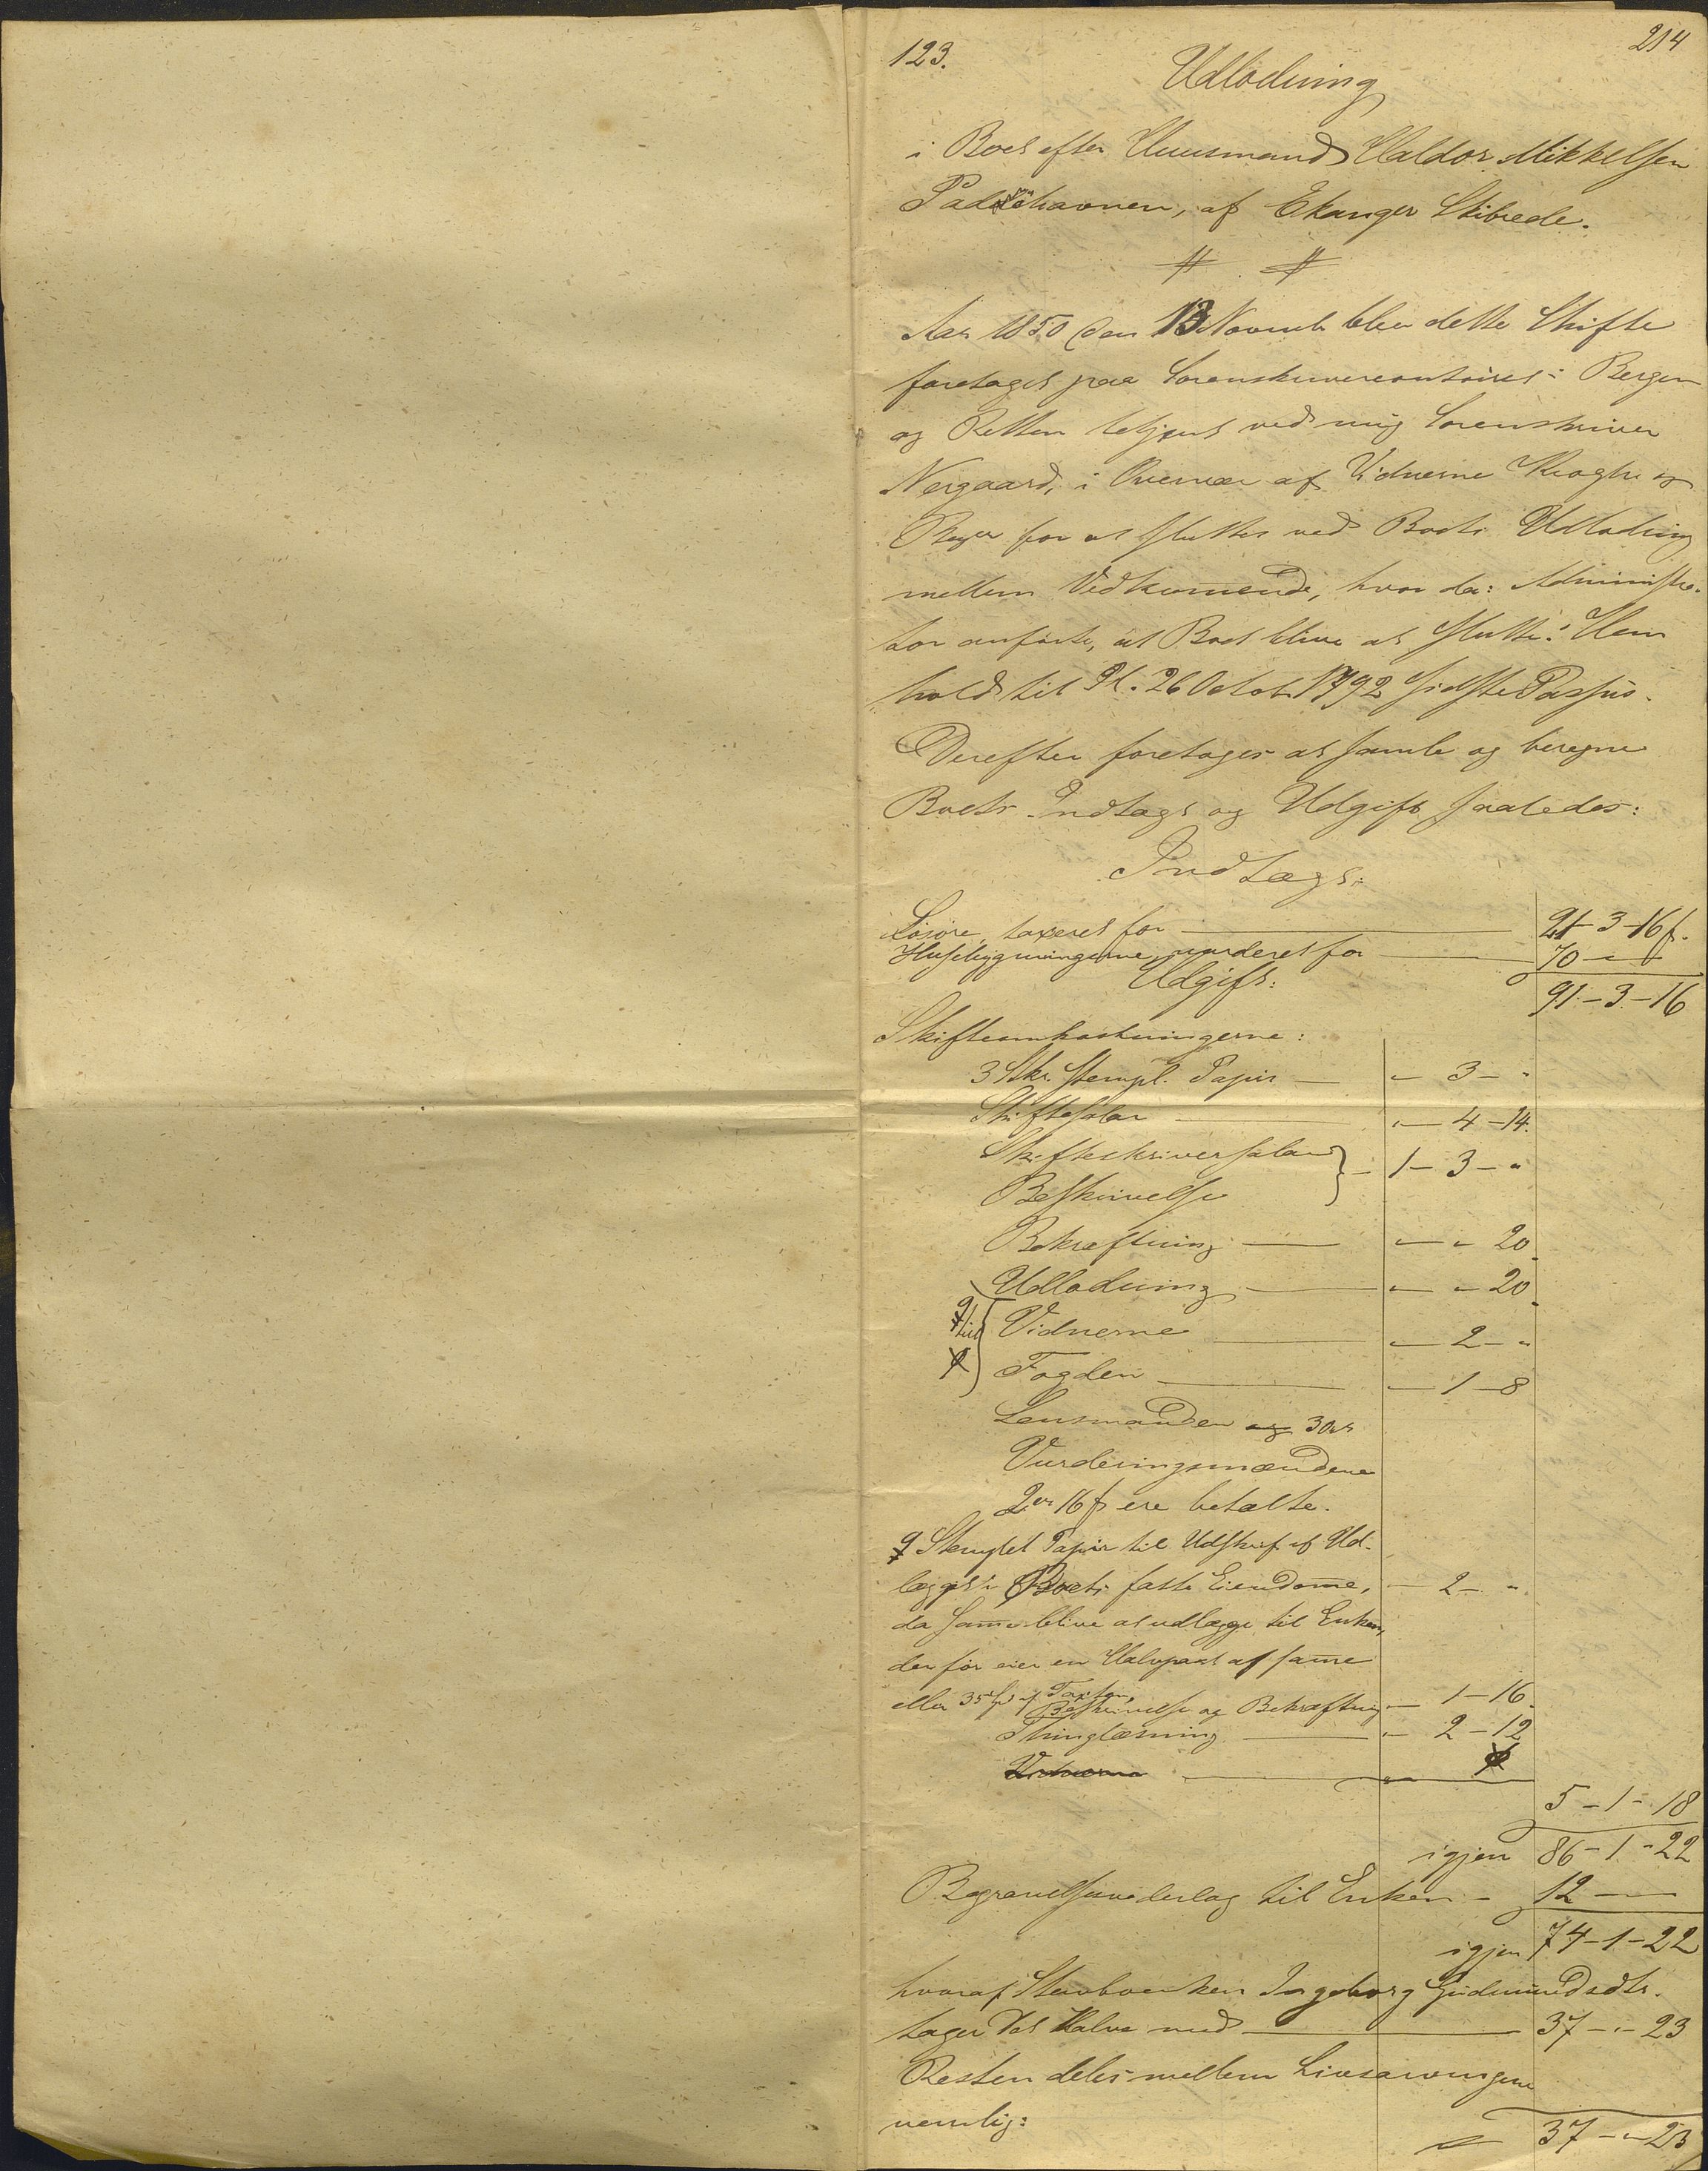 123.
214
Udlodning
i Boet efter Huusmand Haldor Mikkelsen
havnen, af Ekanger Skibrede.
Aar 1850 den 13 Novemb. blev dette Skifte
foretaget paa Sorenskrivercontoiret i Bergen
og Retten betjent ved mig Sorenskriver
Nergaard, i Overvær af Vidnerne Krogh og
for at sluttes ved Boets Udlodning
mellem Vedkommende, hvor da: Administra-
tor anførte, at Boet bliver at slutte i Hen
hold til Pl. 26 Octob. 1792 sidste Passus.
Derefter foretoges at samle og beregne
Boets Indtægt og Udgift saaledes:
Indtægt:
Løsøre, taxeret for — 21 - 3 - 16 ß.
Husebygningerne, vurderet for — 70 - " - "
Udgift:
91 - 3 - 16
Skifteomkostningerne:
3 Stk. stempl. Papir — " - 3 - "
Skiftesalar — " - 4 - 14.
Skifteskriversalar } 1 - 3 - "
Beskrivelse
Bekræftning — " - " 20
Udlodning — " - " 20
til Vidnerne — " - 2 - "
Fogden — " - 1 - 8
Lensmanden og 3 ort
Vurderingsmændene
2 ort 16 ß ere betalte.
Stemplet Papir til Udskrift af Ud-
lægget i Boets faste Eiendomme, " - 2 - "
da samme bliver at udlægge til Enken,
der før eier en Halvpart af samme
eller 35 Spd af Taxten,
Beskrivelse og Bekræftning " - 1 - 16
Thinglæsning — " - 2 - 12
Vidnerne — "
5 - 1 - 18
igjen 86 - 1 - 22
Begravelsesvederlag til Enken - 12 - " - "
igjen 74 - 1 - 22
hvoraf Stervboenken Ingeborg Gudmundsdtr.
tager det Halve med — 37 - " - 23
Resten deles mellem Livsarvingerne
nemlig:
37 - " - 23